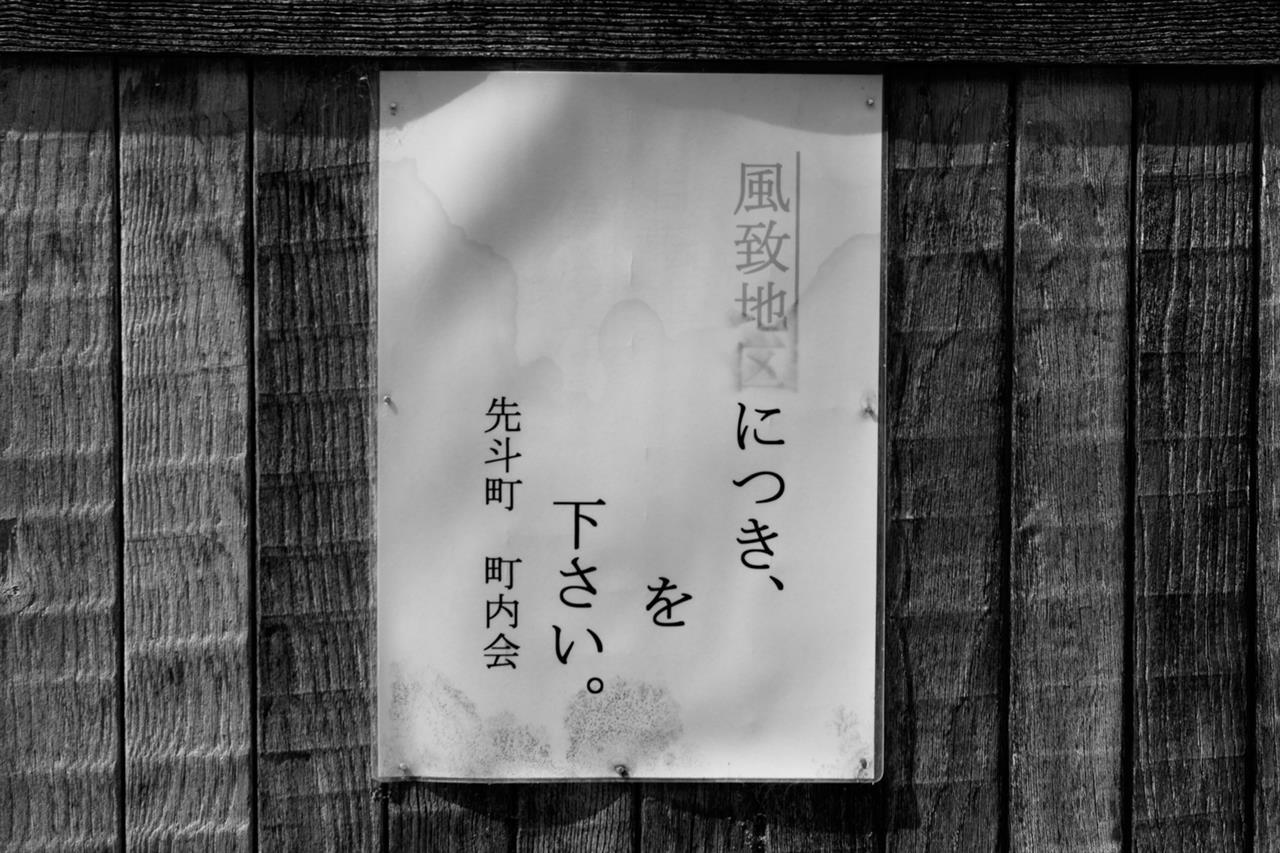 風致地区につき、
を
下さい。
先斗町 町内会